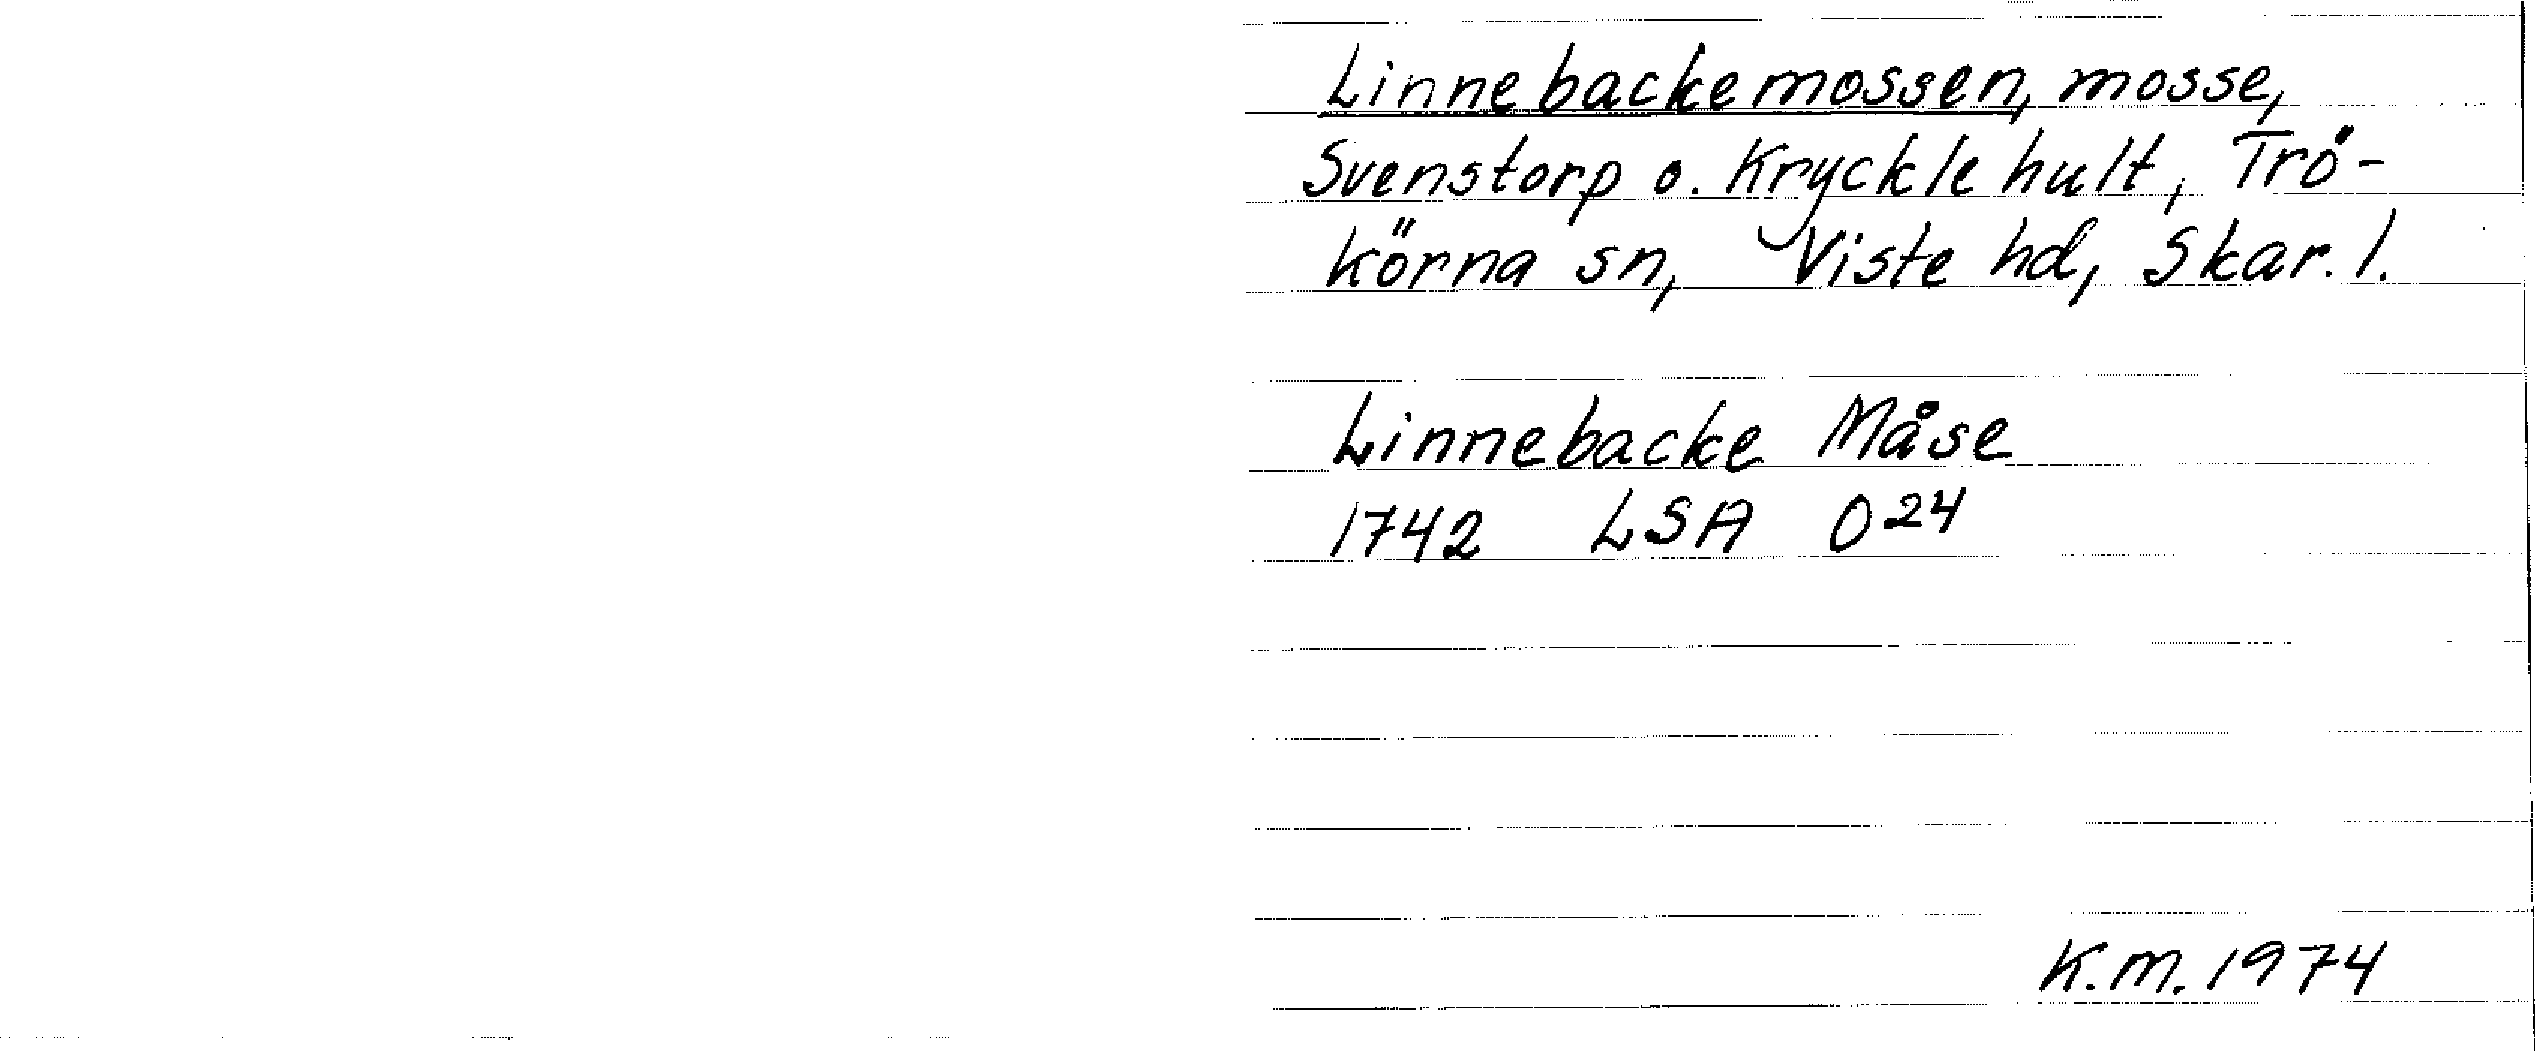 Linnebackemossen, mosse,
Svenstorp o. Krycklehult, Trö-
körna sn, Viste hd, Skar. l.
Linnebacke Måse
1742 LSA O24
K.M. 1974